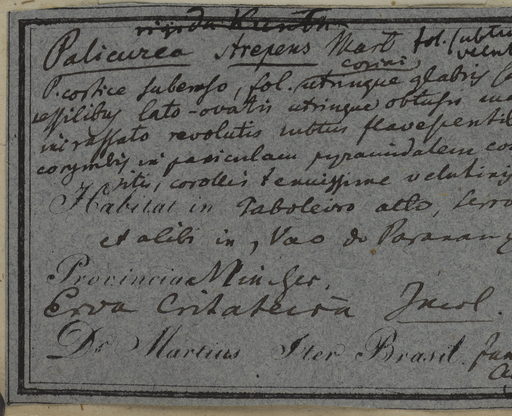 rigida Kunth
Palicurea strepens Mart fol. subtus
velut
corini
P. cortice suberoso, fol. utrinque glabris
sessilibus lato-ovatis utrinque obtusis
incrassato revolutis subtus flavescentib
corymbis in paniculam pyramidalem
sitis, corollis tenuissime velutinis
Habitat in Taboleiro alto, Serro
et alibi in, Vao do Paranan
Provincia Min. Ger.
Erva Gritateira Incol.
Dr Martius Iter Brasil. Jun